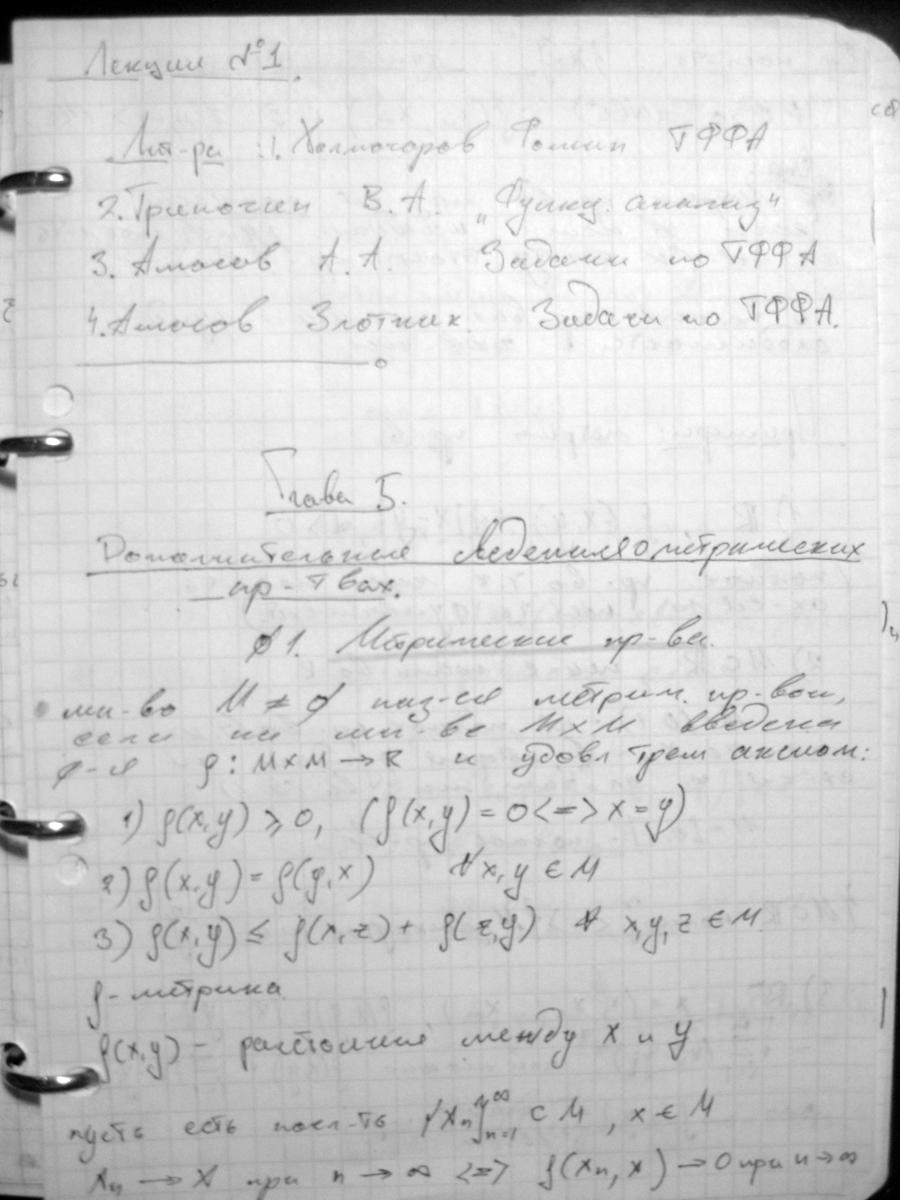 Лекции №1.
Лит-ра: 1. Колмогоров Фомин ТФФА
2. Треногин В.А. „Функц. анализ"
3. Амосов А.А. Задачи по ТФФА
4. Амосов Злотник. Задачи по ТФФА.
Глава 5.
Дополнительные сведения о метрических
пр-твах.
§1. Метрические пр-ва.
мн-во M ≠ ∅ наз-ся метрич. пр-вом,
если на мн-ве M×M введена
ф-я ρ: M×M → R и удовл трем аксиом:
1) ρ(x,y) ⩾ 0, (ρ(x,y) = 0 <=> x = y)
2) ρ(x,y) = ρ(y,x) ∀x,y ∈ M
3) ρ(x,y) ≤ ρ(x,z) + ρ(z,y) ∀ x,y,z ∈ M
ρ - метрика
ρ(x,y) - расстояние между x и y
пусть есть посл-ть {xₙ}ₙ₌₁^∞ ⊂ M, x ∈ M
xₙ → x при n → ∞ <=> ρ(xₙ, x) → 0 при n → ∞